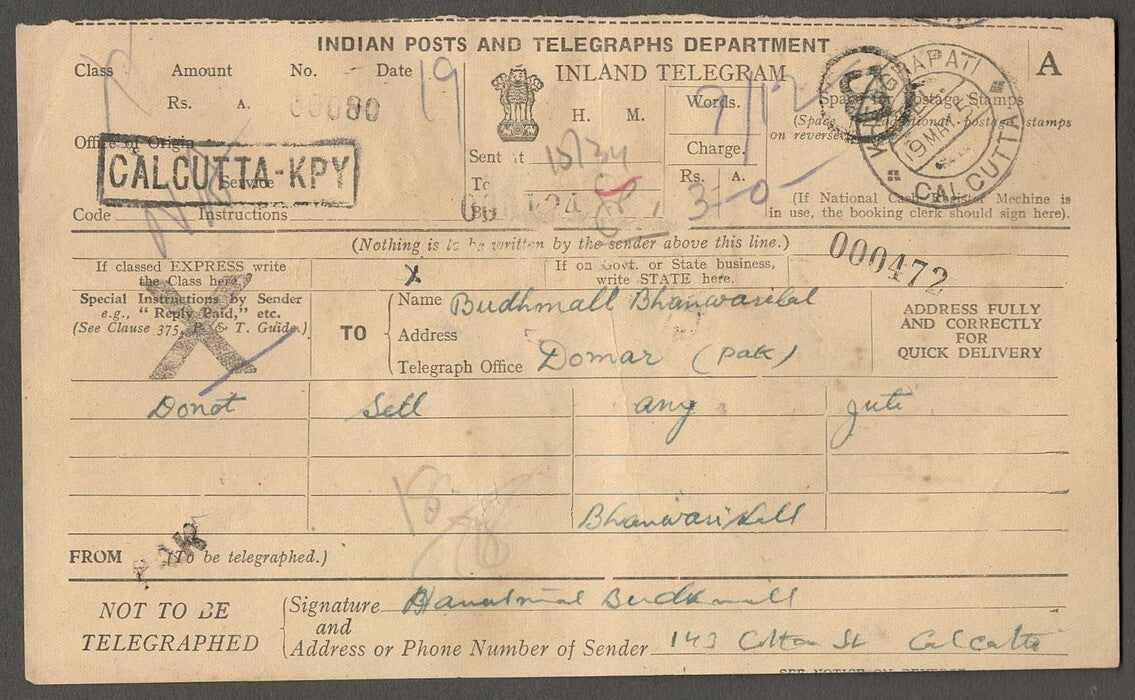 INDIAN POSTS AND TELEGRAPHS DEPARTMENT
Class Amount No. Date INLAND TELEGRAM A
Rs. A. 00080 19 H. M. Words. 9/12 Space for Postage Stamps
(Space for additional postage stamps
on reverse
Office of Origin
CALCUTTA-KPY
Service
Sent at 18/34 Charge.
To Rs. A.
3-0-
9 MAR
CALCUTTA
(If National Cash Register Mechine is
in use, the booking clerk should sign here).
Code Instructions By
(Nothing is to be written by the sender above this line.)
000472
If classed EXPRESS write
the Class here.
X
If on Govt. or State business,
write STATE here.
Special Instructions by Sender
e.g., “ Reply Paid,” etc.
(See Clause 375, P. & T. Guide.)
X
TO
Name Budhmall Bhanwarilal
Address
Telegraph Office Domar (Pak)
ADDRESS FULLY
AND CORRECTLY
FOR
QUICK DELIVERY
Donot Sell any jute
Bhanwarilall
FROM (To be telegraphed.)
PAK
NOT TO BE
TELEGRAPHED
Signature Budhmall
and
Address or Phone Number of Sender 143 Cotton St Calcutta
SEE NOTICE ON REVERSE